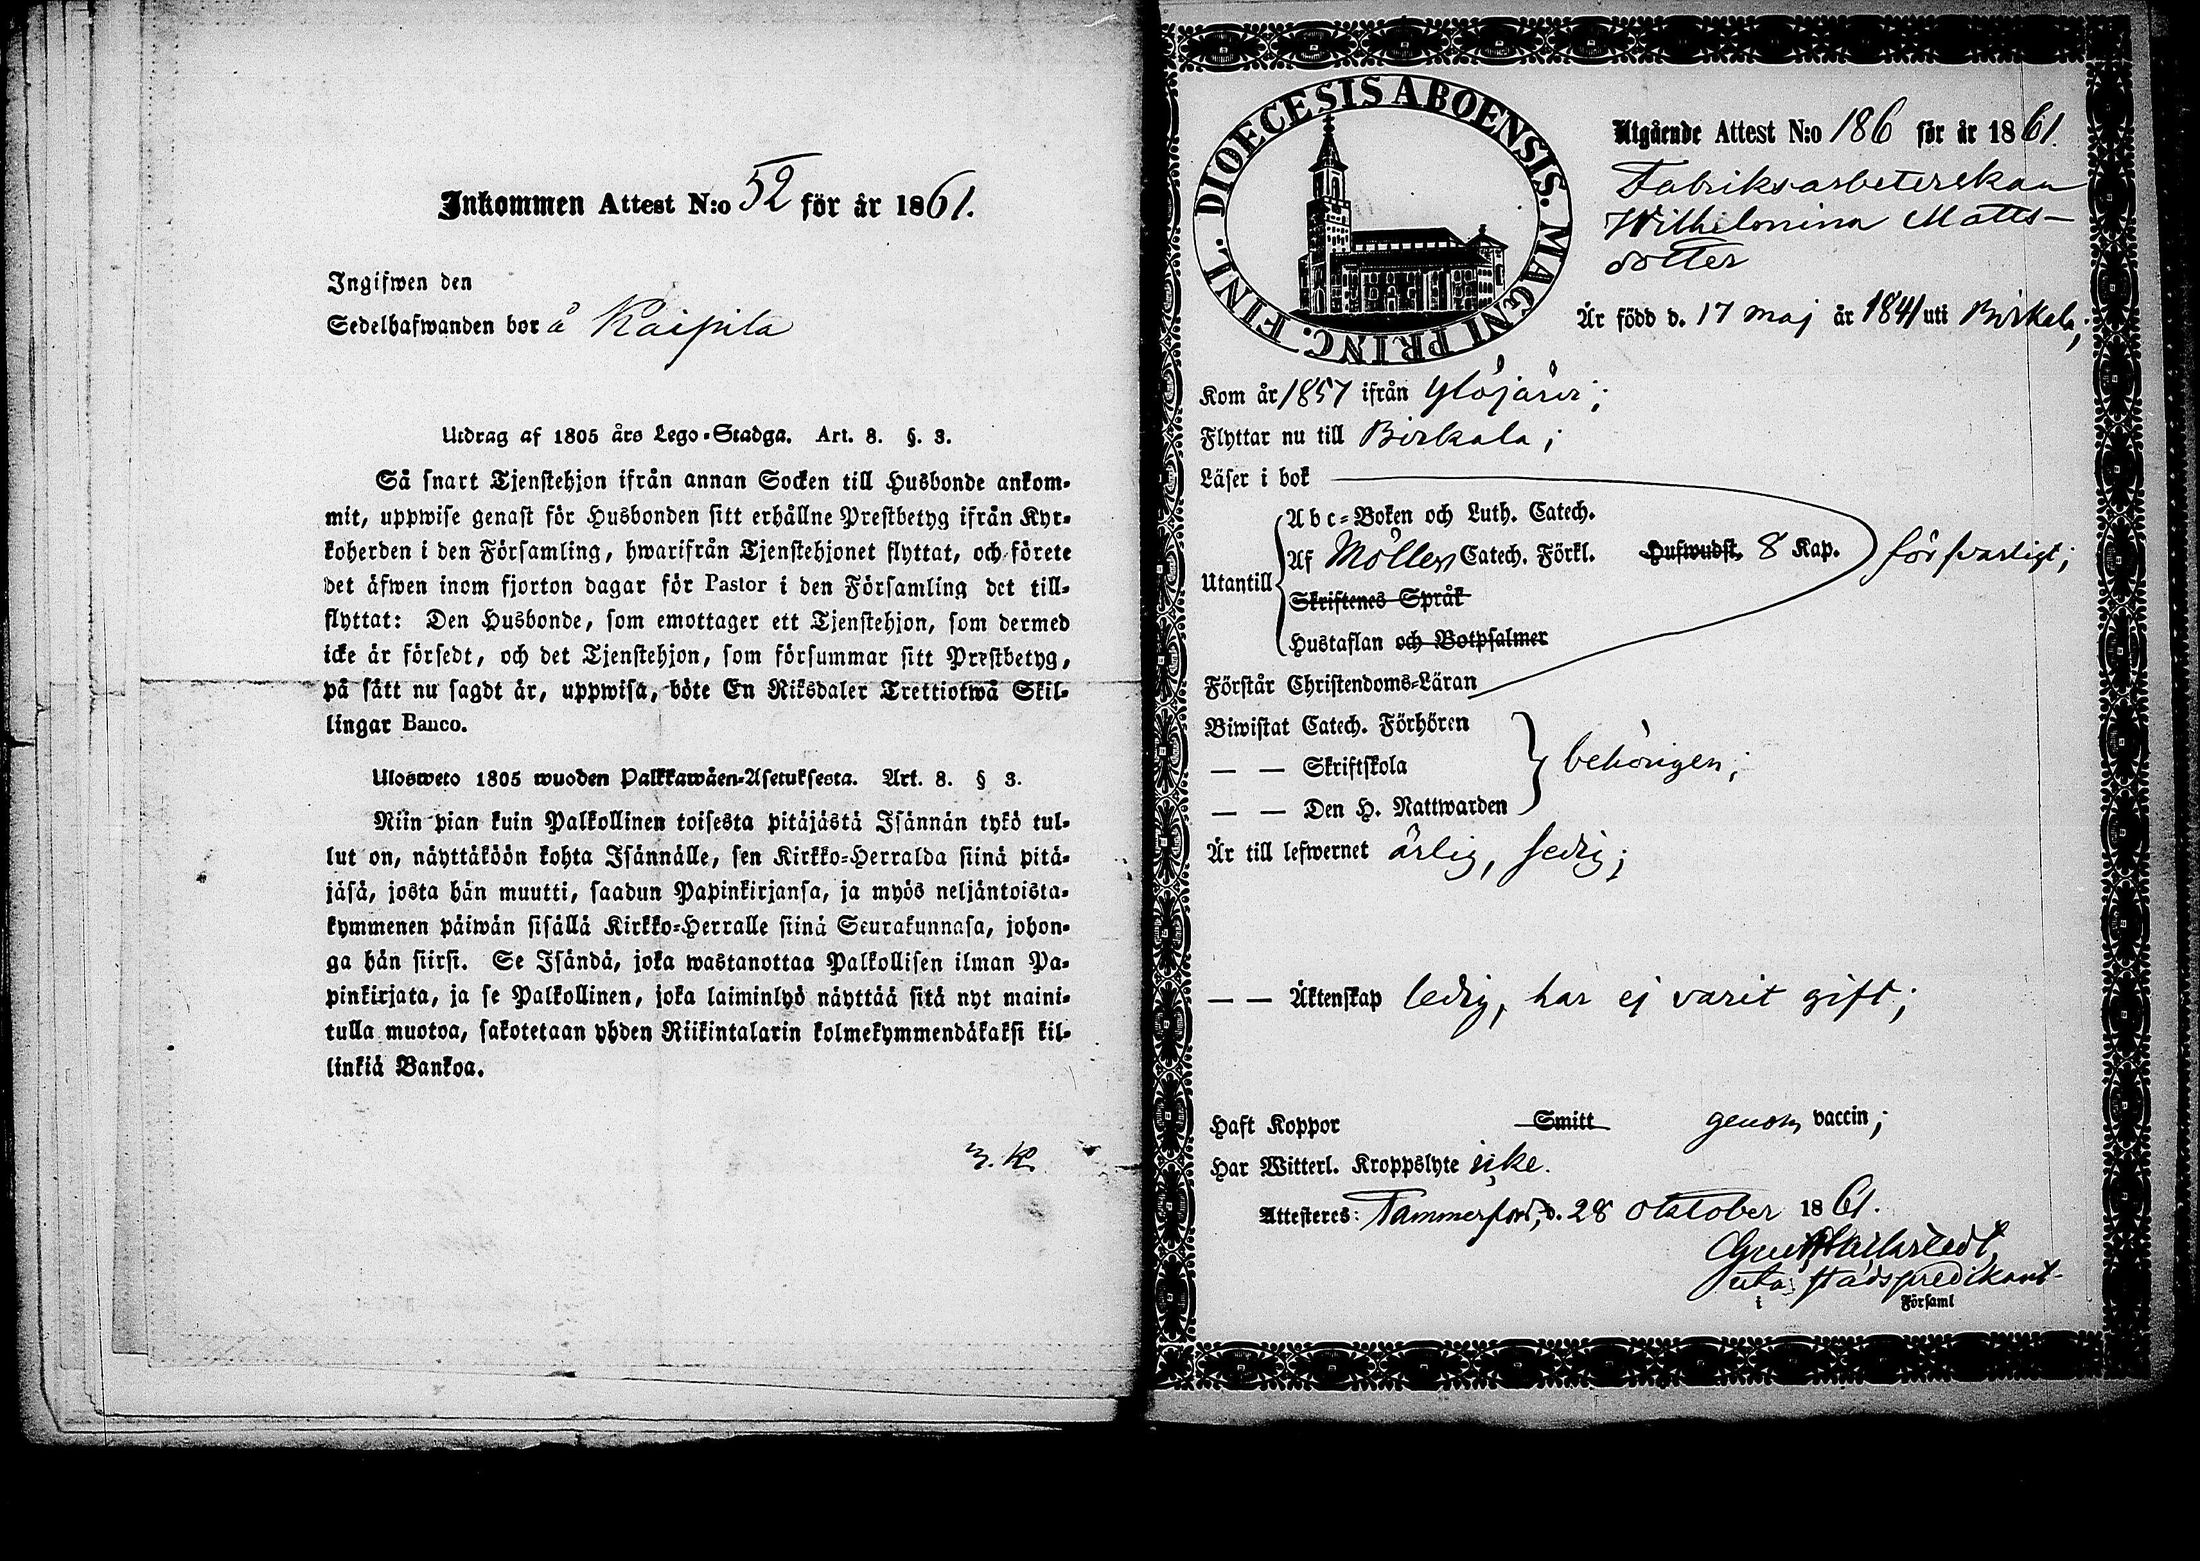 Inkommen Attest N:o 52 för år 1861.
Ingifwen den
Sedelhafwanden bor å Kaipila
Utdrag af 1805 års Lego-Stadga. Art. 8. §. 3.
Så snart Tjenstehjon ifrån annan Socken till Husbonde ankom-
mit, uppwise genast för Husbonden sitt erhållne Prestbetyg ifrån Kyr-
koherden i den Församling, hwarifrån Tjenstehjonet flyttat, och förete
det äfwen inom fjorton dagar för Pastor i den Församling det till-
flyttat: Den Husbonde, som emottager ett Tjenstehjon, som dermed
icke är försedt, och det Tjenstehjon, som försummar sitt Prestbetyg,
på sätt nu sagdt är, uppwisa, böte En Riksdaler Trettiotwå Skil-
lingar Banco.
Ulosweto 1805 wuoden Palkkawäen-Asetuksesta. Art. 8. § 3.
Niin pian kuin Palkollinen toisesta pitäjästä Isännän tykö tul-
lut on, näyttäköön kohta Isännälle, sen Kirkko-Herralda siinä pitä-
jäsä, josta hän muutti, saadun Papinkirjansa, ja myös neljäntoista-
kymmenen päiwän sisällä Kirkko-Herralle siinä Seurakunnasa, johon-
ga hän siirsi. Se Isändä, joka wastanottaa Palkollisen ilman Pa-
pinkirjata, ja se Palkollinen, joka laiminlyö näyttää sitä nyt maini-
tulla muotoa, sakotetaan yhden Riikintalarin kolmekymmendäkaksi kil-
linkiä Bankoa.
DIOECESIS ABOENSIS. MAGNI PRINC. FINL.
Utgående Attest N:o 186 för år 1861.
Fabriksarbeterskan
Wilhelmina Matts-
dotter
Är född d. 17 maj år 1841 uti Birkala;
Kom år 1857 ifrån Ylöjärvi;
Flyttar nu till Birkala;
Läser i bok
Abc-Boken och Luth. Catech.
Utantill Af Möllers Catech. Förkl. Hufwudst. 8 Kap. försvarligt;
Skriftenes Språk
Hustaflan och Botpsalmer
Förstår Christendoms-Läran
Biwistat Catech. Förhören
— — Skriftskola behörigen;
— — Den H. Nattwarden
Är till lefwernet ärlig, sedig;
— — Äktenskap ledig, har ej varit gift;
Haft Koppor Smitt genom vaccin;
Har Witterl. Kroppslyte icke.
Attesteres: Tammerfors, d. 28 oktober 1861.
stadspredikant
i Församl